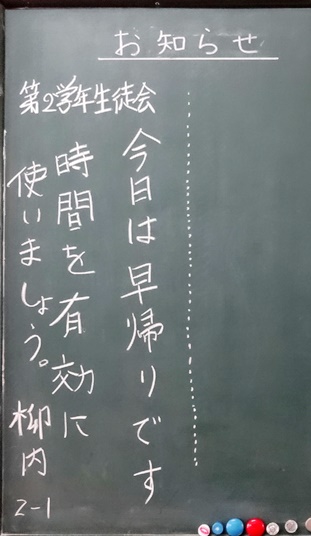 お知らせ
第2学年生徒会
今日は早帰りです
時間を有効に
使いましょう。
柳内
2-1